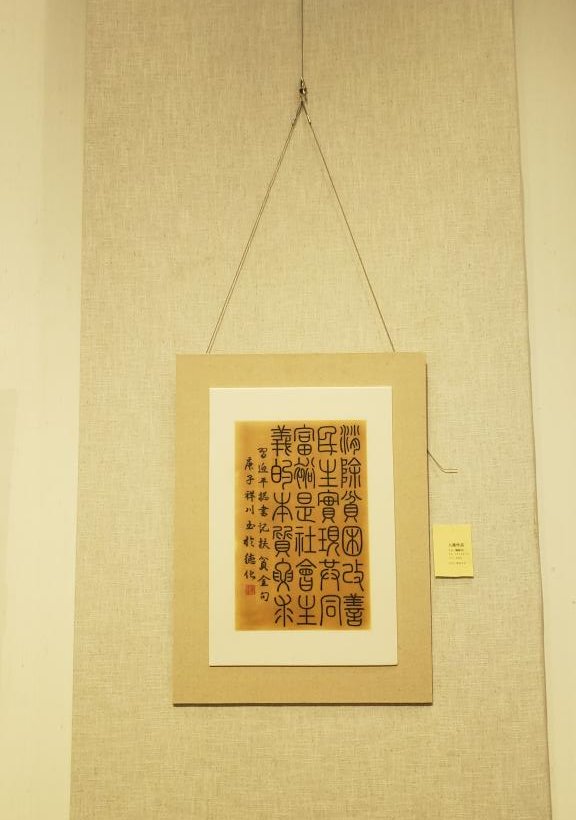 消除貧困改善
民生實現共同
富裕是社會主
義的本質要求
習近平總書記扶貧金句
庚子祥川書於德化